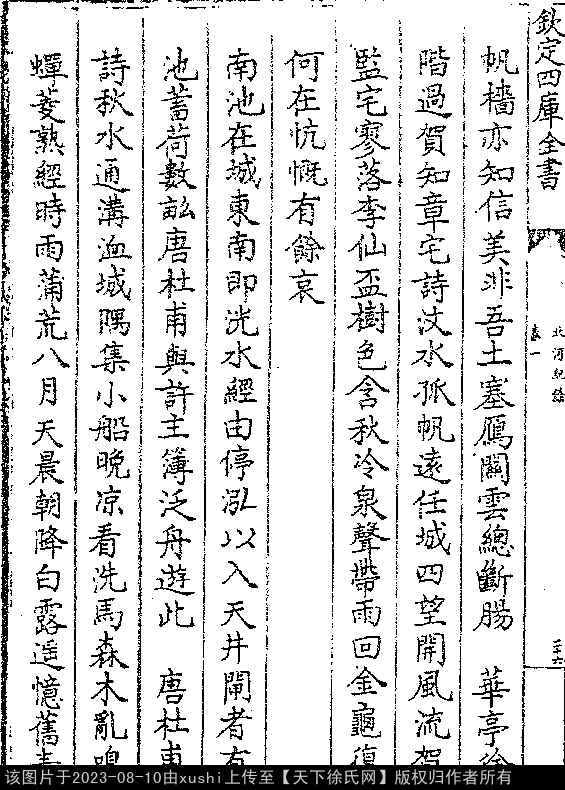 欽定四庫全書
北河紀餘
卷一
三六
帆檣亦知信美非吾土塞鴈關雲總斷腸　華亭徐
階過賀知章宅詩汶水孤帆遠任城四望開風流賀
監宅寥落李仙盃樹色含秋冷泉聲帶雨回金龜復
何在忼慨有餘哀
南池在城東南即洸水經由停泓以入天井閘者有
池蓄荷數畝唐杜甫與許主簿泛舟遊此　唐杜甫
詩秋水通溝洫城隅集小船晚凉看洗馬森木亂鳴
蟬菱熟經時雨蒲荒八月天晨朝降白露遥憶舊青
该图片于2023-08-10由xushi上传至【天下徐氏网】版权归作者所有